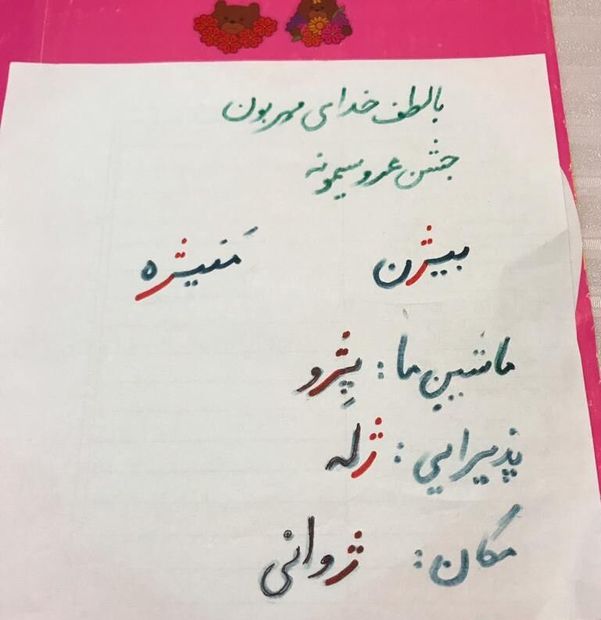 با لطف خدای مهربون
جشن عروسیمونه
بیژن مَنیژه
ماشین ما: پِژو
پذیرایی: ژله
مکان: ژوانی